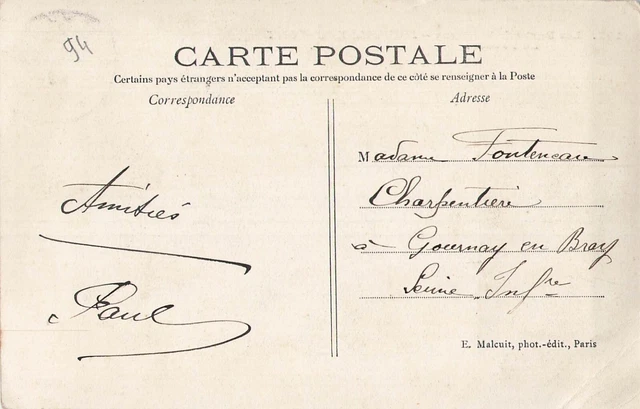 94
CARTE POSTALE
Certains pays étrangers n'acceptant pas la correspondance de ce côté se renseigner à la Poste
Correspondance
Adresse
Madame Fonteneau
Charpentière
à Gournay en Bray
Seine Infre
Amitiés
Paul
E. Malcuit, phot.-édit., Paris